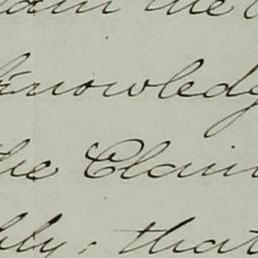 the
knowledg
the Claim
bly, that